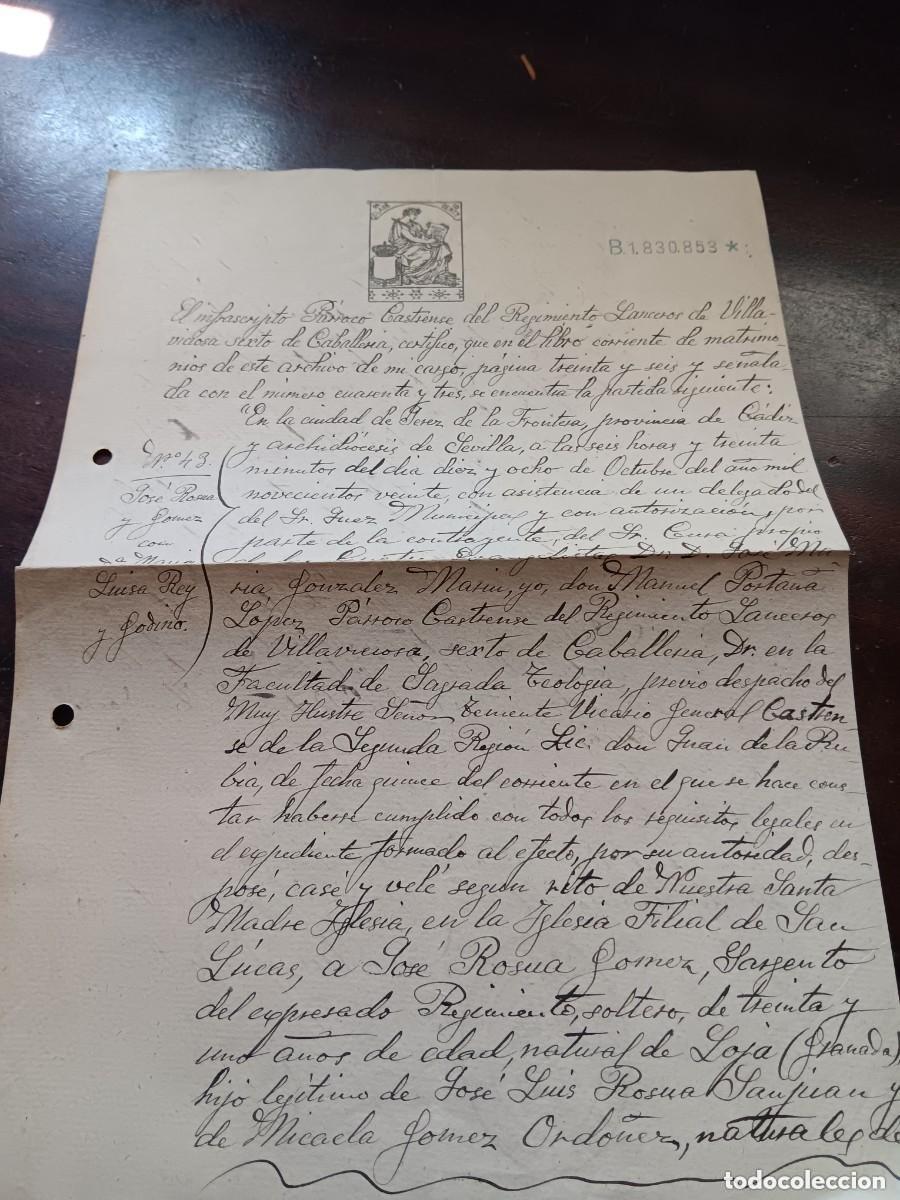 B.1.830.853 *
El infrascripto Párroco Castrense del Regimiento Lanceros de Villa-
viciosa sexto de Caballeria, certifico, que en el libro corriente de matrimo
nios de este archivo de mi cargo, página treinta y seis y señala-
da con el número cuarenta y tres, se encuentra la partida siguiente:
"En la ciudad de Jerez de la Frontera, provincia de Cádiz
y archidiócesis de Sevilla, a las seis horas y treinta
minutos del dia diez y ocho de Octubre del año mil
novecientos veinte, con asistencia de un delegado del
del Sr. Juez Municipal y con autorización, por
parte de la contrayente, del Sr. Cura propio
Dr. D. José Ma
ria Gonzalez Marin, yo, don Manuel Portana
López Párroco Castrense del Regimiento Lanceros
de Villaviciosa, sexto de Caballeria, Dr. en la
Facultad de Sagrada Teologia, previo despacho del
Muy Ilustre Señor Teniente Vicario General Castren-
se de la Segunda Región Lic. don Juan de la Ru
bia, de fecha quince del corriente en el que se hace cons-
tar haberse cumplido con todos los requisitos legales en
el expediente formado al efecto, por su autoridad, des-
posé, casé y velé segun rito de Nuestra Santa
Madre Iglesia, en la Iglesia Filial de San
Lúcas, a José Rosua Gomez, Sargento
del expresado Regimiento, soltero, de treinta y
uno años de edad, natural de Loja (Granada)
hijo legitimo de José Luis Rosua Sanjuan y
de Micaela Gomez Ordoñez, naturales de
Nº 43.
José Rosua
y Gomez
con
Dª Maria
Luisa Rey
y Godino.
todocoleccion